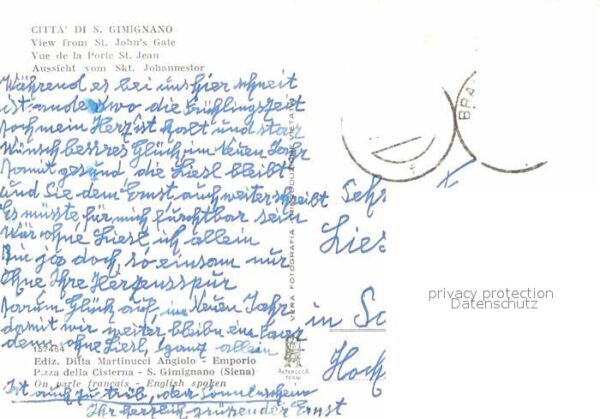 CITTA' DI S. GIMIGNANO
View from St. John's Gate
Vue de la Porte St. Jean
Aussicht vom Skt. Johannestor
Während es bei uns hier schneit
ist anderswo die Frühlingszeit
doch mein Herz ist kalt und starr
Wünsch bessres Glück im Neuen Jahr
damit gesund die Liesl bleibt
und Sie dem Ernst auch weiter schreibt
Es müsste für mich furchtbar sein
Wär ohne Liesl ich allein
Bin ja doch so einsam nur
Ohne Ihre Herzensspur
darum Glück auf, im Neuen Jahr
damit wir weiter bleiben ein Paar
denn ohne Liesl, ganz allein
157464
Ediz. Ditta Martinucci Angiolo - Emporio
P.zza della Cisterna - S. Gimignano (Siena)
On parle français - English spoken
Ist auch zu trüb, der Sonnenschein
Ihr herzlich grüßender Ernst
VERA FOTOGRAFIA - RIPRODUZIONE VIETATA
ALTEROCCA
TERNI
BRA
Sehr
Lies
in Sc
Hoch
privacy protection
Datenschutz